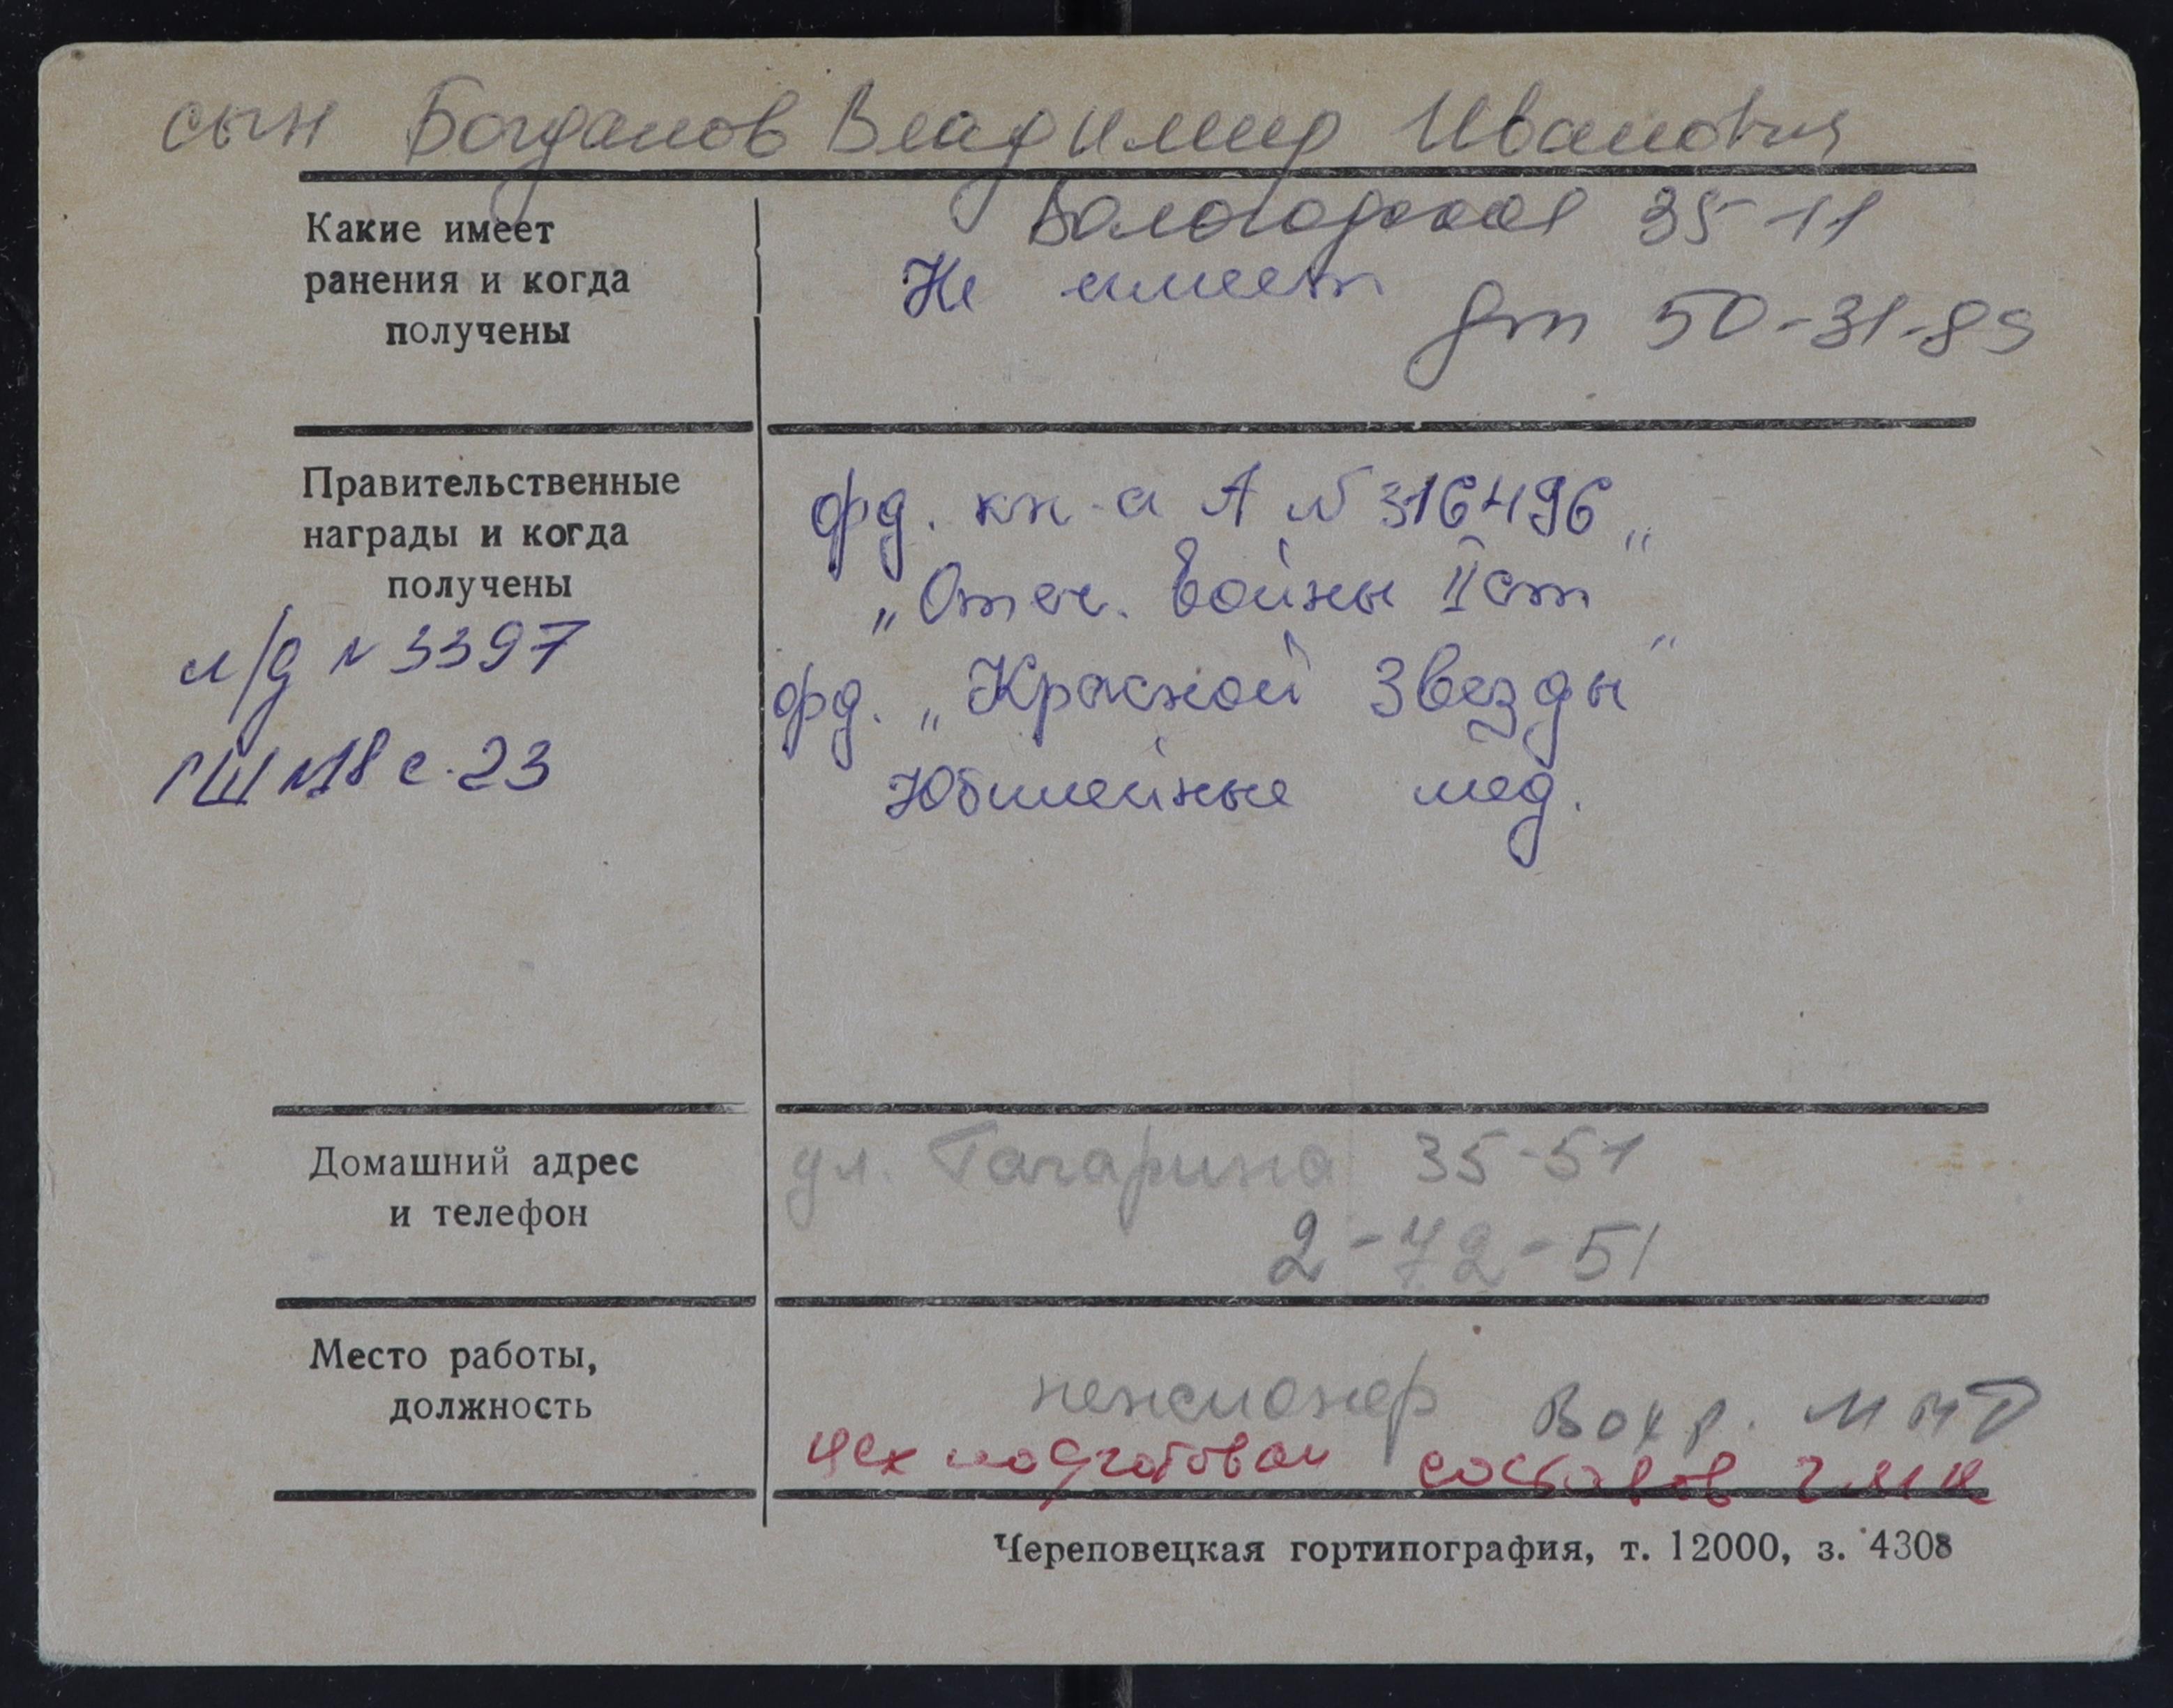 сын Богданов Владимир Иванович
Вологодская 35-11
Какие имеет
ранения и когда
получены
Не имеет
дт 50-31-89
Правительственные
награды и когда
получены
л/д № 3397
ГШ №18 с. 23
орд. кн-а А № 316496
„Отеч. войны II ст"
орд. „Красной Звезды"
Юбилейные мед.
Домашний адрес
и телефон
ул. Гагарина 35-51
2-72-51
Место работы,
должность
пенсионер Вохр.
цех подготовки составов ЧМК
Череповецкая гортипография, т. 12000, з. 4308